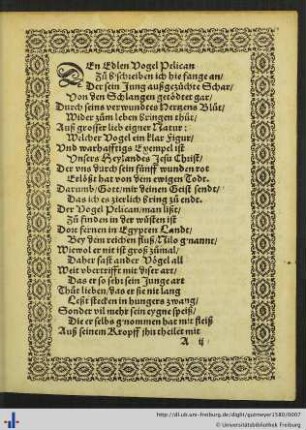 DEn Edlen Vogel Pelican
Zů bschreiben ich hie fange an/
Der sein Jung außgezüchte Schar/
Von den Schlangen getödtet gar/
Durch seins verwundtes Hertzens Blůt/
Wider zům leben bringen thůt/
Auß grosser lieb eigner Natur:
Welcher Vogel ein klar Figur/
Vnd warhafftigs Exempel ist
Vnsers Heylandes Jesu Christ/
Der vns durch sein fünff wunden rot
Erlößt hat von dem ewigen Todt.
Darumb/ Gott/ mir deinen Geist sendt/
Das ich es zierlich bring zu endt.
Der Vogel Pelican/ man lißt/
Zů finden in der wüsten ist
Dort fernen in Egypten Landt/
Bey dem reichen fluß/ Nilo g'nannt/
Wiewol er nit ist groß zůmal/
Daher fast ander Vögel all
Weit vbertrifft mit diser art/
Das er so sehr sein Junge art
Thůt lieben/ das er sie nit lang
Leßt stecken in hungers zwang/
Sonder vil mehr sein eygne speiß/
Die er selbs g'nommen hat mit fleiß
Auß seinem Kropff jhn theilet mit
A ij
http://dl.ub.uni-freiburg.de/diglit/gutmeyer1580/0007
© Universitätsbibliothek Freiburg